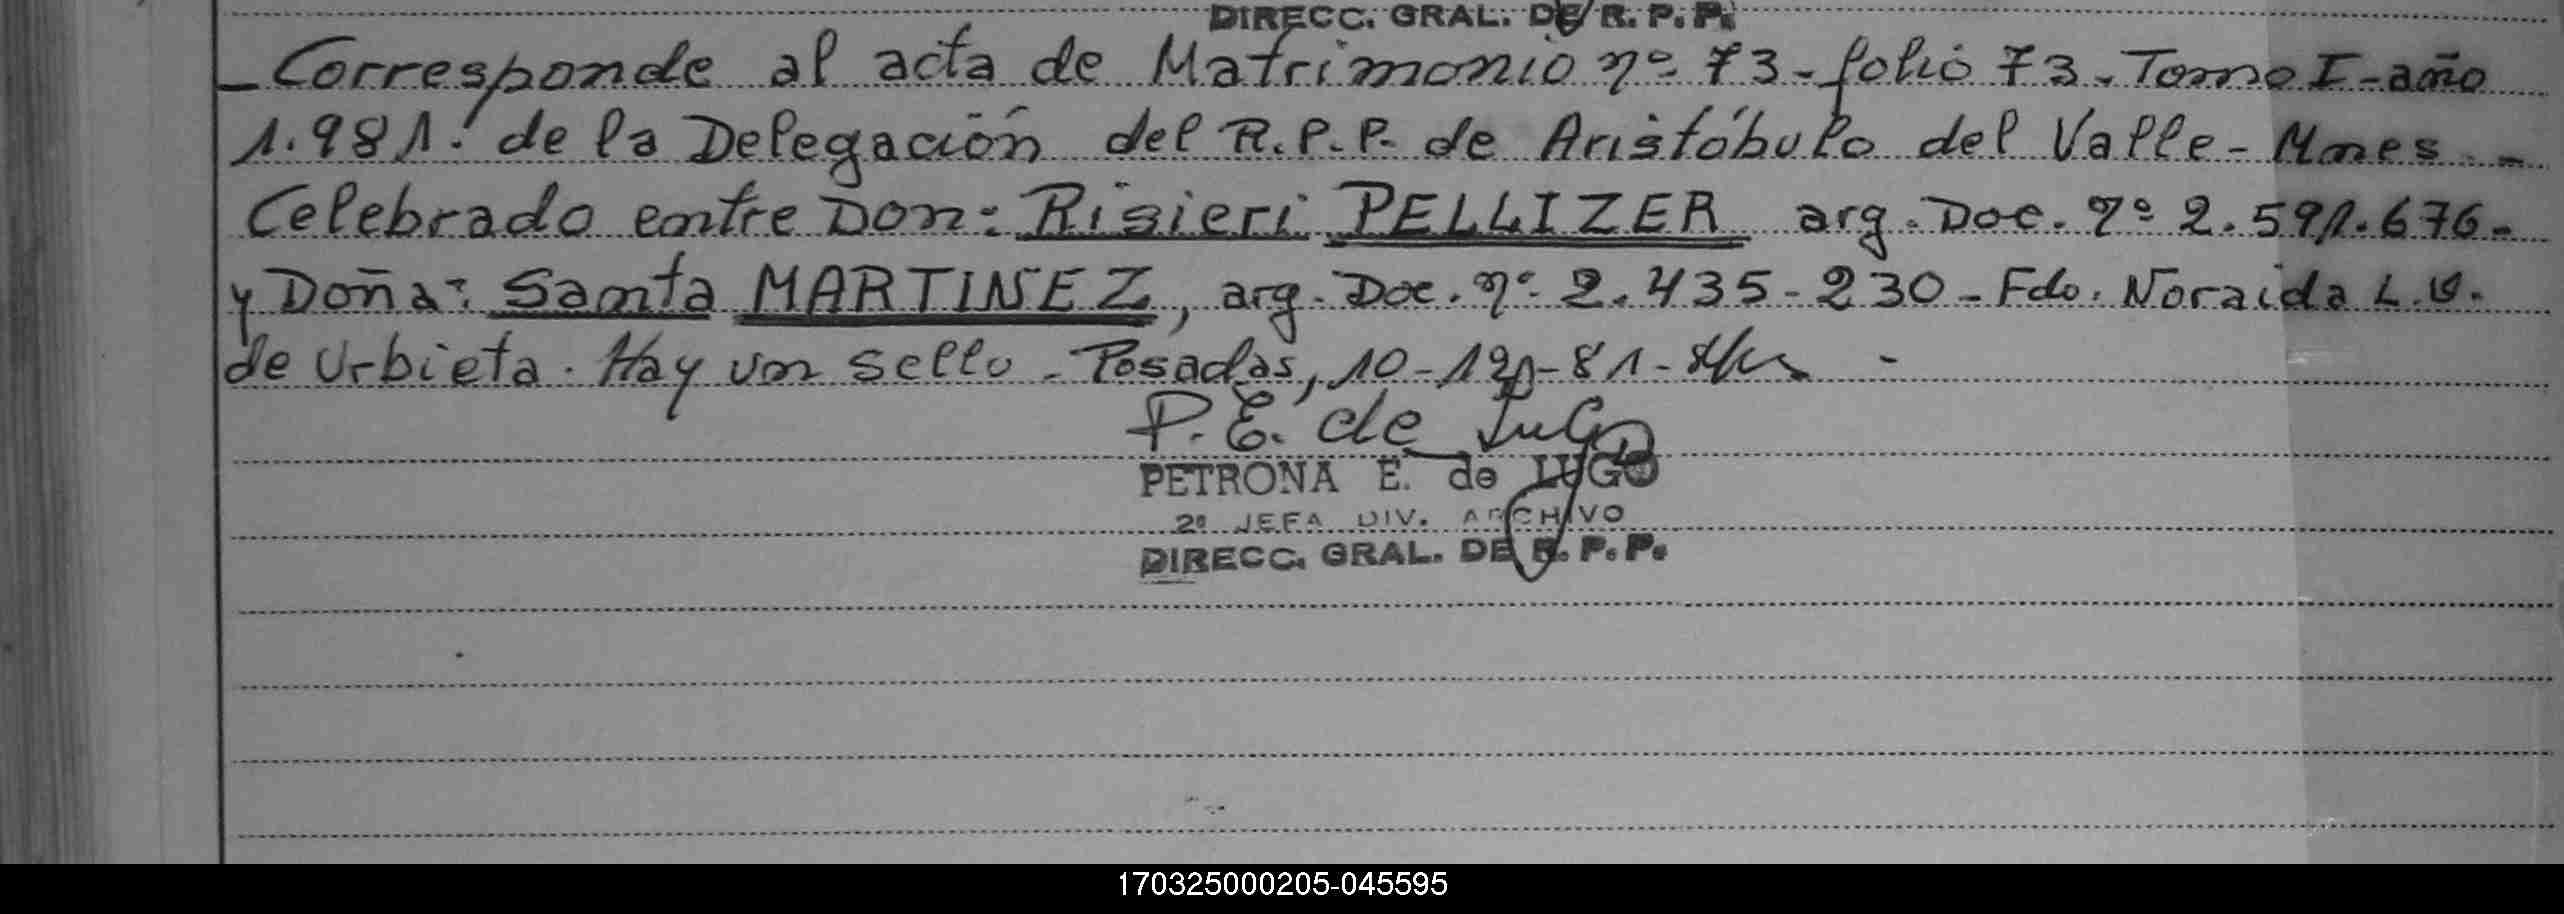 DIRECC. GRAL. DE R. P. P.
- Corresponde al acta de Matrimonio nº 73 - folio 73 - Tomo I - año
1.981. de la Delegación del R.P.P. de Aristóbulo del Valle - Mnes. -
Celebrado entre Don: Risieri PELLIZER arg. Doc. nº 2.591.676 -
y Doña: Santa MARTINEZ, arg. Doc. nº 2.435-230 - Fdo. Noraida L.V.
de Urbieta. Hay un sello - Posadas, 10-12-81 -
P. E. de Lugo
PETRONA E. de LUGO
2º JEFA DIV. ARCHIVO
DIRECC. GRAL. DE R. P. P.
170325000205-045595